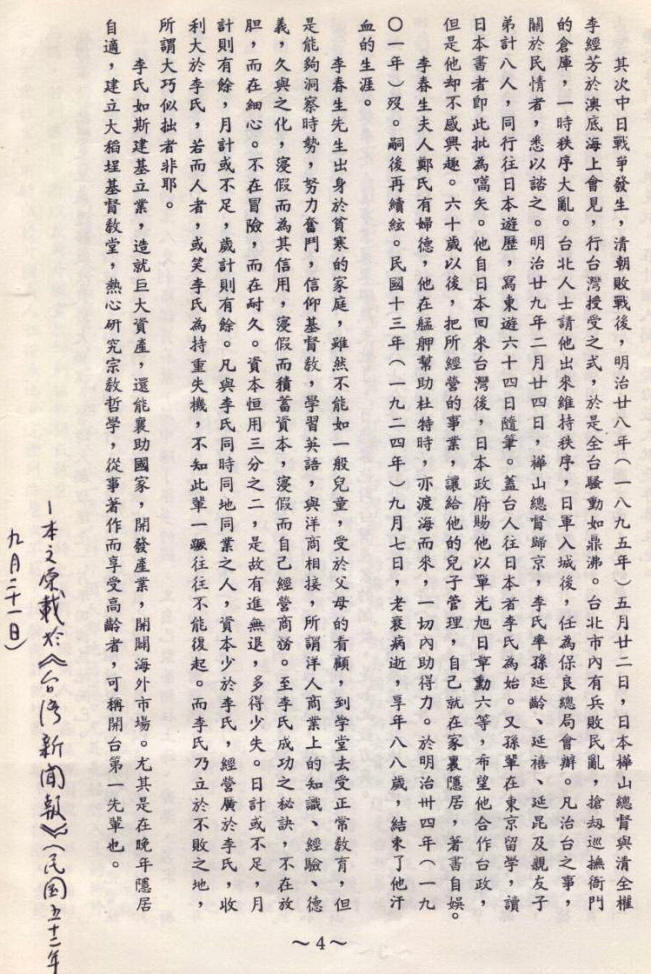 其次中日戰爭發生，清朝敗戰後，明治廿八年（一八九五年）五月廿二日，日本樺山總督與清全權
李經芳於澳底海上會見，行台灣授受之式，於是全台騷動如鼎沸。台北市內有兵敗民亂，搶刼巡撫衙門
的倉庫，一時秩序大亂。台北人士請他出來維持秩序，日軍入城後，任為保良總局會辦。凡治台之事，
關於民情者，悉以諮之。明治廿九年二月廿四日，樺山總督歸京，李氏率孫延齡、延禧、延昆及親友子
弟計八人，同行往日本遊歷，寫東遊六十四日隨筆。蓋台人往日本者李氏為始。又孫輩在東京留學，讀
日本書者即此批為嚆矢。他自日本回來台灣後，日本政府賜他以單光旭日章勳六等，希望他合作台政，
但是他却不感興趣。六十歲以後，把所經營的事業，讓給他的兒子管理，自己就在家裏隱居，著書自娛。
李春生夫人鄭氏有婦德，他在艋舺幫助杜特時，亦渡海而來，一切內助得力。於明治卅四年（一九
〇一年）歿。嗣後再續絃。民國十三年（一九二四年）九月七日，老衰病逝，享年八八歲，結束了他汗
血的生涯。
李春生先生出身於貧寒的家庭，雖然不能如一般兒童，受於父母的看顧，到学堂去受正常教育，但
是能夠洞察時勢，努力奮鬥，信仰基督教，學習英語，與洋商相接，所謂洋人商業上的知識、經驗、德
義，久與之化，寖假而為其信用，寖假而積蓄資本，寖假而自己經營商務。至李氏成功之秘訣，不在放
胆，而在細心。不在冒險，而在耐久。資本恒用三分之二，是故有進無退，多得少失。日計或不足，月
計則有餘，月計或不足，歲計則有餘。凡與李氏同時同地同業之人，資本少於李氏，經營廣於李氏，收
利大於李氏，若而人者，或笑李氏為持重失機，不知此輩一蹶往往不能復起。而李氏乃立於不敗之地，
所謂大巧似拙者非耶。
李氏如斯建基立業，造就巨大資產，還能襄助國家，開發產業，開闢海外市場。尤其是在晚年隱居
自適，建立大稻埕基督敎堂，熱心研究宗敎哲學，從事著作而享受高齡者，可稱開台第一先輩也。
－本文原載於《台湾新聞報》（民国五十二年
九月二十一日）
～4～